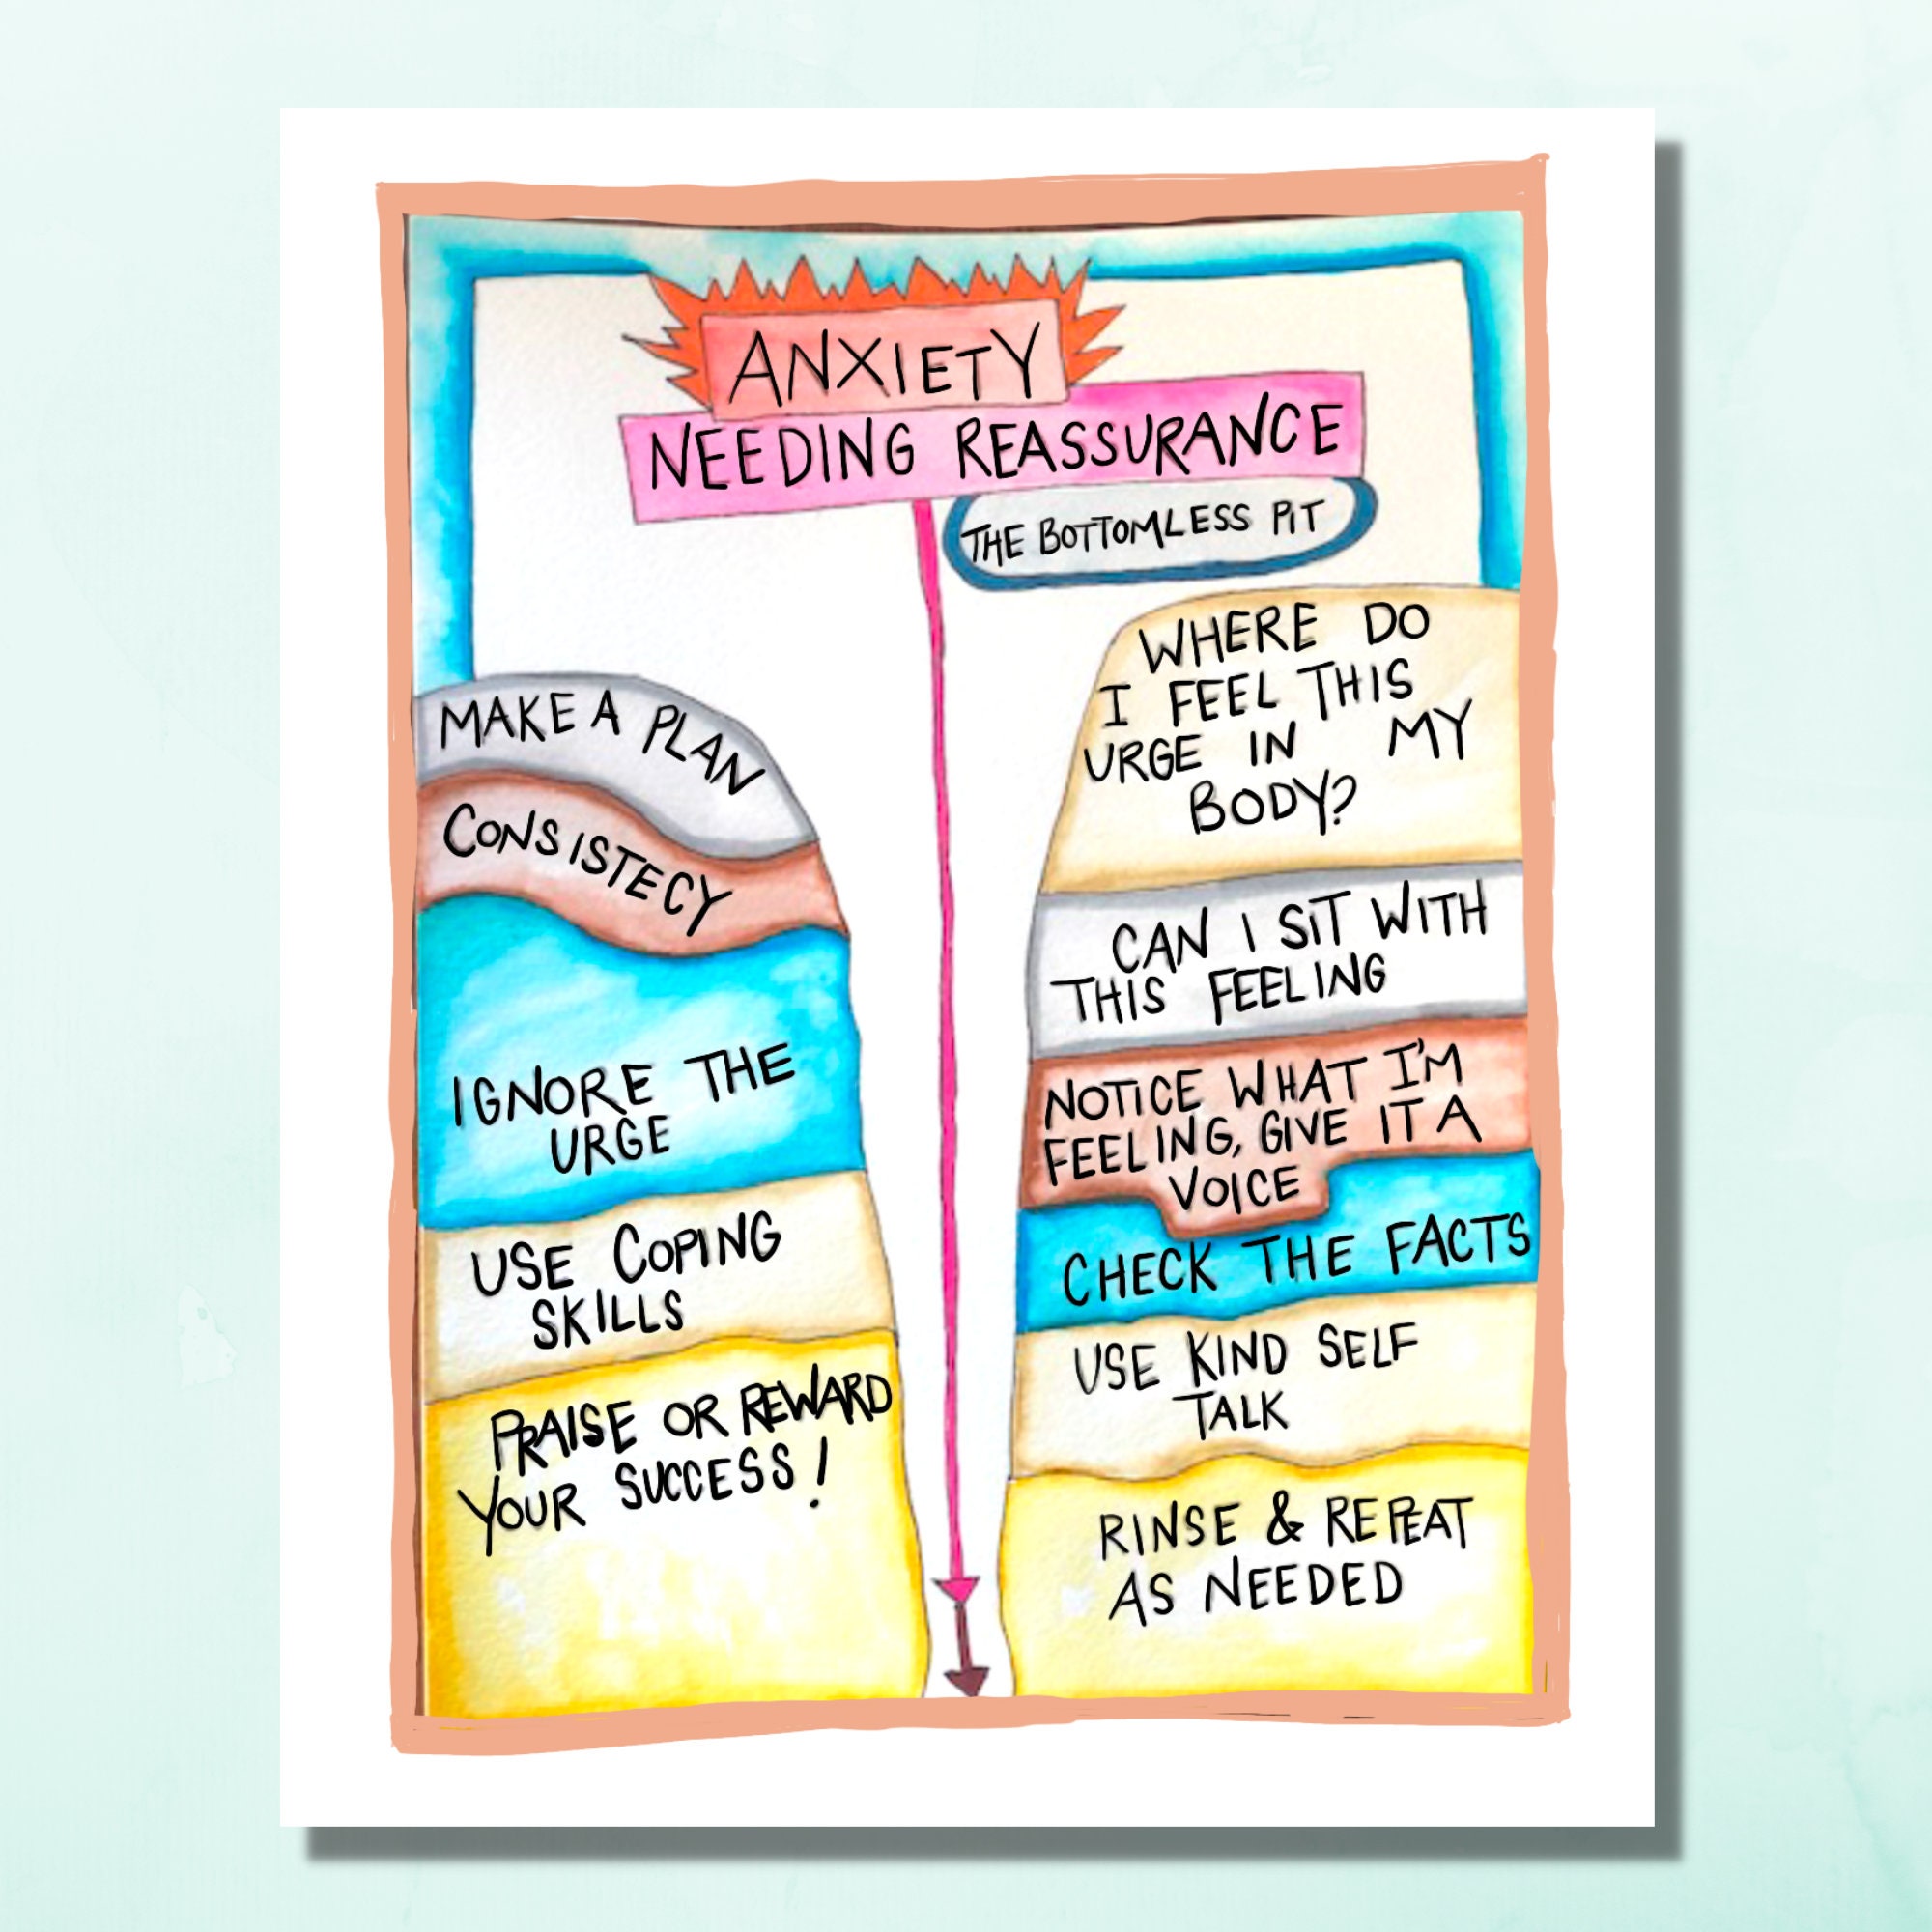 ANXIETY
NEEDING REASSURANCE
THE BOTTOMLESS PIT
MAKE A PLAN
CONSISTECY
IGNORE THE
URGE
USE COPING
SKILLS
PRAISE OR REWARD
YOUR SUCCESS!
WHERE DO
I FEEL THIS
URGE IN MY
BODY?
CAN I SIT WITH
THIS FEELING
NOTICE WHAT I'M
FEELING, GIVE IT A
VOICE
CHECK THE FACTS
USE KIND SELF
TALK
RINSE & REPEAT
AS NEEDED